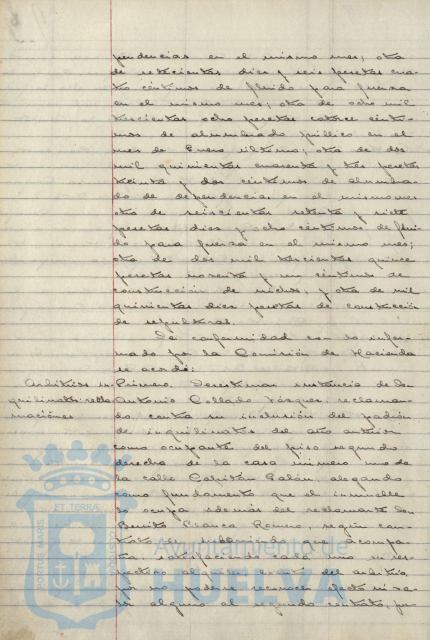 pendencias en el mismo mes; otra
de setecientas diez y seis pesetas cua-
tro céntimos de fluido para fuerza
en el mismo mes; otra de ocho mil
trescientas ocho pesetas catorce cénti-
mos de alumbrado público en el
mes de Enero último; otra de dos
mil quinientas cuarenta y tres pesetas
treinta y dos céntimos de alumbra-
do de dependencias en el mismo mes
otra de seiscientas setenta y siete
pesetas diez y ocho céntimos de flui-
do para fuerza en el mismo mes;
otra de dos mil trescientas quince
pesetas noventa y un céntimos de
construcción de nichos, y otra de mil
quinientas diez pesetas de construcción
de sepulturas.
De conformidad con lo infor-
mado por la Comisión de Hacienda
se acordó:
Arbitrios in-
quilinatos: recla-
maciones
Primero. Desestimar instancia de Don
Antonio Collado Vázquez, reclaman-
do contra su inclusión del padrón
de inquilinatos del año anterior
como ocupante del piso segundo
derecha de la casa número uno de
la calle Capitán Galán, alegando
como fundamento que el inmueble
lo ocupa además del reclamante Don
Benito Romero, según con-
trato de subarriendo que acompa-
ña, satisfaciendo cada uno su res-
pectivo alquiler del arbitrio,
por no poderse reconocer efecto
alguno al segundo contrato,
PORTUS MARIS
ET TERRAE
Ayuntamiento de
HUELVA